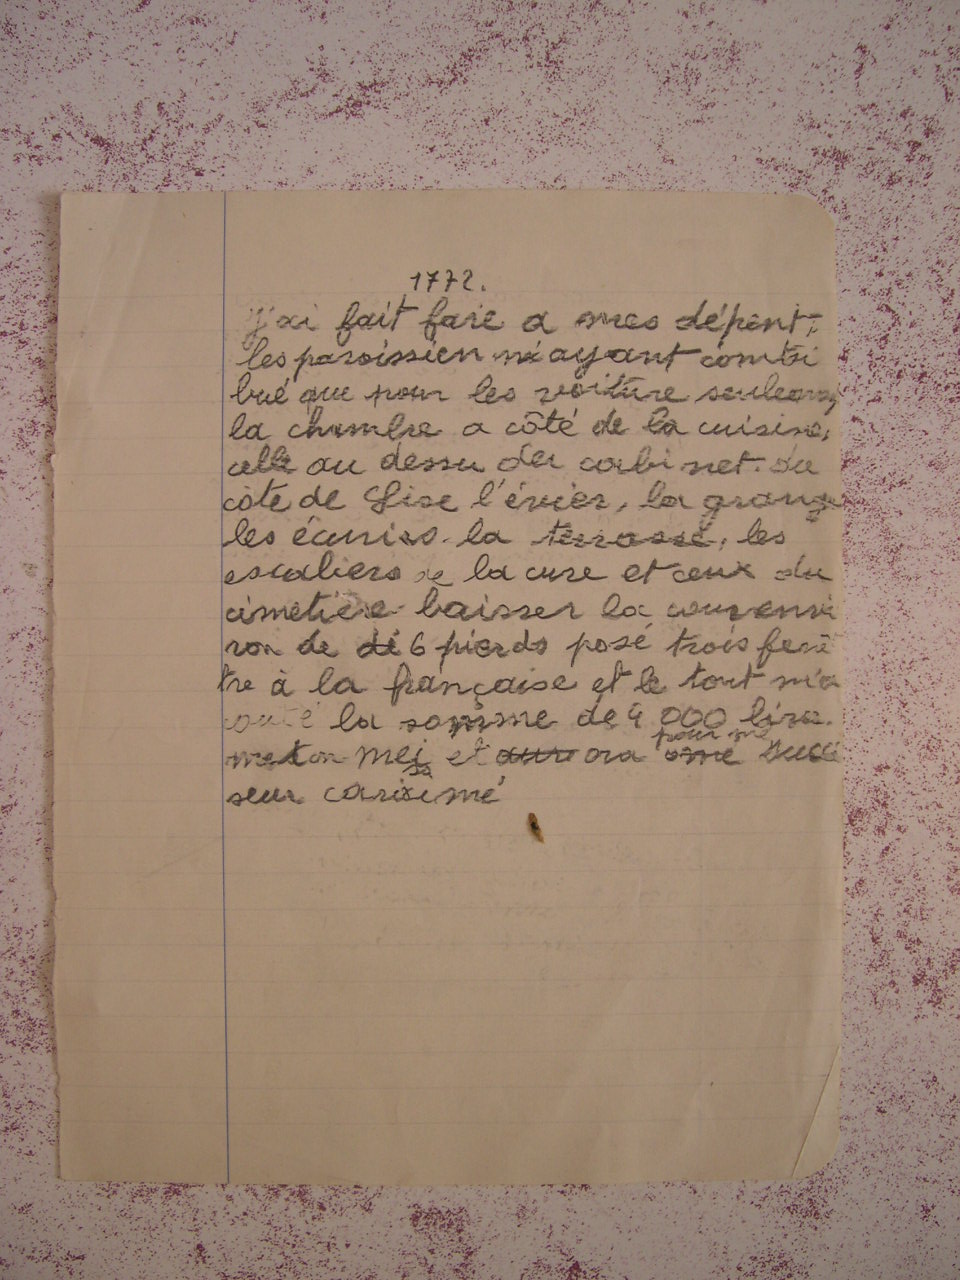 1772.
J'ai fait faire a mes dépent,
les paroissien n'ayant contri
bué que pour les voiture seulement
la chambre a côté de la cuisine,
celle au dessu du cabinet. du
côte de l'évier, la grange
les écuries. la terrasse, les
escaliers de la cure et ceux du
cimetière baisser la cour envi
ron de dé 6 pierds posé trois fenê
tre à la française et le tout m'a
couté la somme de 4 000 livre.
et ora
pour me
seur carissimé